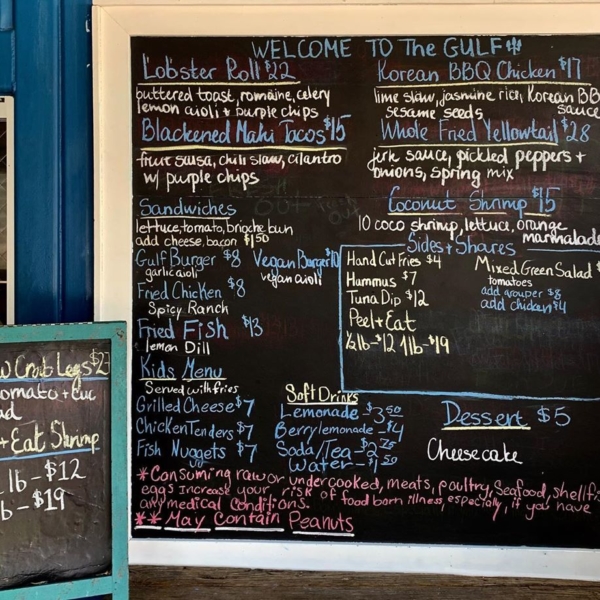 WELCOME TO The GULF
Lobster Roll $22
buttered toast, romaine, celery
lemon aioli + purple chips
Blackened Mahi Tacos $15
fruit salsa, chili slaw, cilantro
w/ purple chips
Korean BBQ Chicken $17
lime slaw, jasmine rice, Korean BBQ
sesame seeds sauce
Whole Fried Yellowtail $28
jerk sauce, pickled peppers +
onions, spring mix
Coconut Shrimp $15
10 coco shrimp, lettuce, orange
marmalade
Sandwiches
lettuce, tomato, brioche bun
add cheese, bacon $1.50
Gulf Burger $8
garlic aioli
Vegan Burger $10
vegan aioli
Fried Chicken $8
Spicy Ranch
Fried Fish $13
lemon Dill
Kids Menu
Served with fries
Grilled Cheese $7
Chicken Tenders $7
Fish Nuggets $7
Sides + Shares
Hand Cut Fries $4
Hummus $7
Tuna Dip $12
Peel + Eat
1/2 lb - $12 1 lb - $19
Mixed Green Salad $
tomatoes
add grouper $8
add chicken $4
Soft Drinks
Lemonade - $3.50
Berry lemonade - $4
Soda/Tea - $2.75
Water - $1.50
Dessert $5
Cheesecake
*Consuming raw or undercooked, meats, poultry, seafood, shellfis
eggs increase your risk of food born illness, especially, if you have
any medical conditions.
** May Contain Peanuts
w Crab Legs $2
omato + cuc
ad
+ Eat Shrimp
lb - $12
b - $19